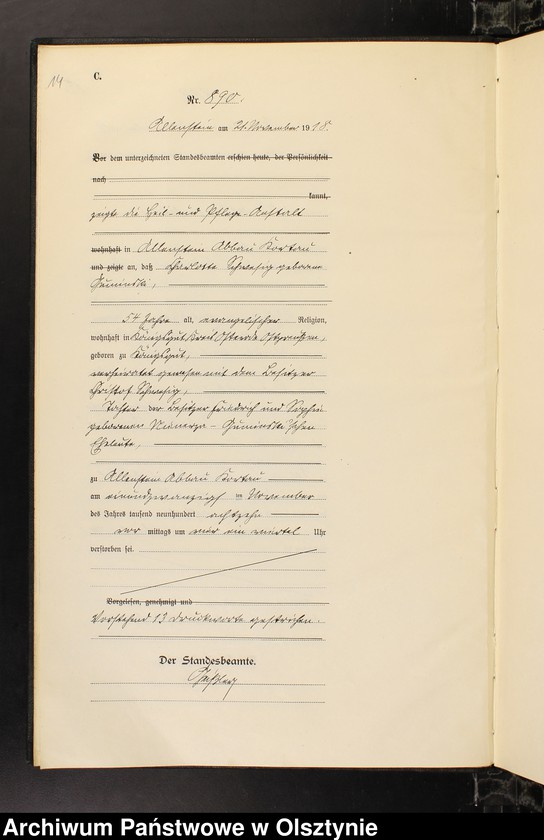 14
C.
Nr. 890.
Allenstein am 21. November 1918.
Vor dem unterzeichneten Standesbeamten erschien heute, der Persönlichkeit
nach
kannt,
zeigte die Heil- und Pflege-Anstalt
wohnhaft in Allenstein Abbau Kortau
und zeigte an, daß Charlotte Schwesig geborene
Guminski,
54 Jahre alt, evangelischer Religion,
wohnhaft in Königsgut, Kreis Osterode Ostpreußen,
geboren zu Königsgut,
verheiratet gewesen mit dem Besitzer
Christof Schwesig,
Tochter der Besitzer Friedrich und Sophie
geborenen - Guminski'schen
Eheleute,
zu Allenstein Abbau Kortau
am einundzwanzigsten November
des Jahres tausend neunhundert achtzehn
vor mittags um ein viertel Uhr
verstorben sei.
Vorgelesen, genehmigt und
Vorstehend 13 Druckworte gestrichen.
Der Standesbeamte.
Archiwum Państwowe w Olsztynie